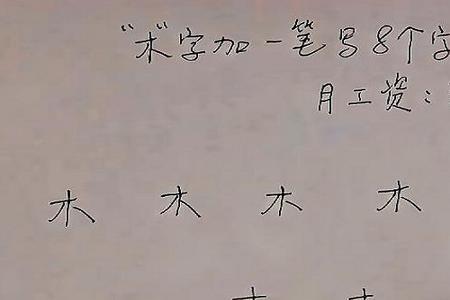 “木”字加一笔写8个字
月工资：
木 木 木 木